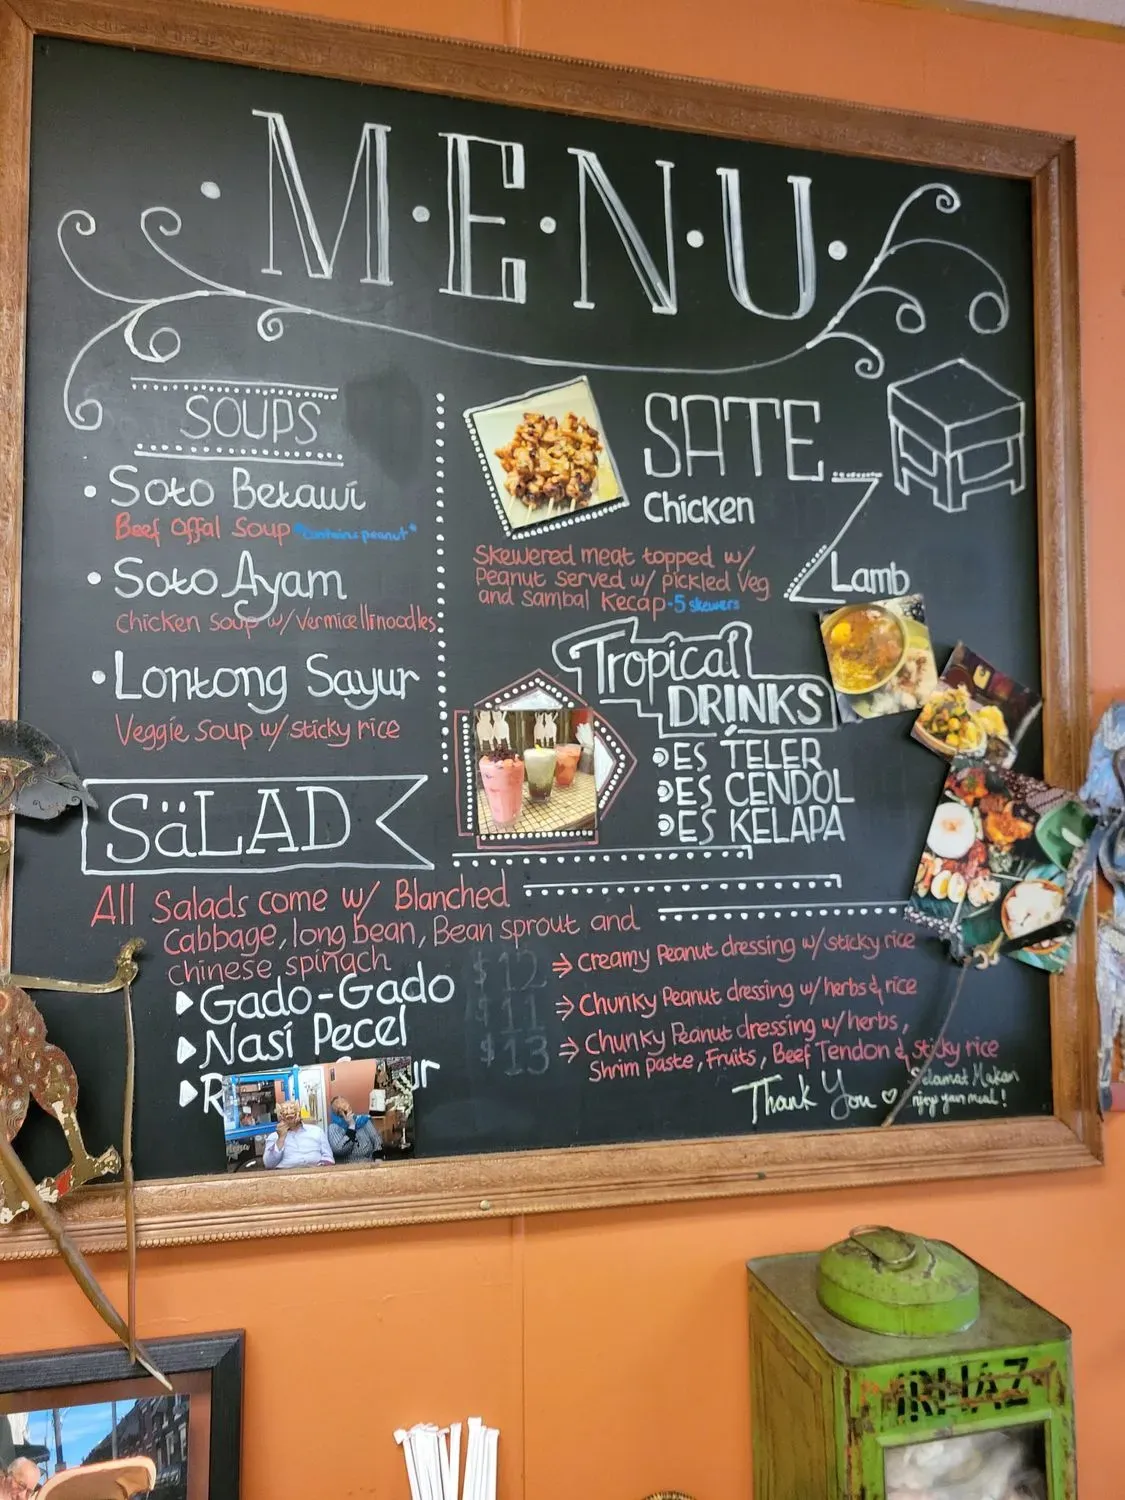 M·E·N·U
SOUPS
Soto Betawi
Beef Offal Soup *Contains peanut*
Soto Ayam
chicken Soup w/ Vermicelli noodles
Lontong Sayur
Veggie Soup w/ sticky rice
SATE
Chicken
Lamb
Skewered meat topped w/
Peanut Served w/ pickled Veg
and Sambal Kecap - 5 skewers
Tropical
DRINKS
ES TELER
ES CENDOL
ES KELAPA
SäLAD
All Salads come w/ Blanched
Cabbage, long bean, Bean sprout and
chinese spinach
Gado-Gado $12 → Creamy Peanut dressing w/ sticky rice
Nasi Pecel $11 → Chunky Peanut dressing w/ herbs & rice
$13 → Chunky Peanut dressing w/ herbs,
Shrim paste, Fruits, Beef Tendon & Sticky rice
Thank You
Selamat Makan
njoy your meal!
IRHAZ